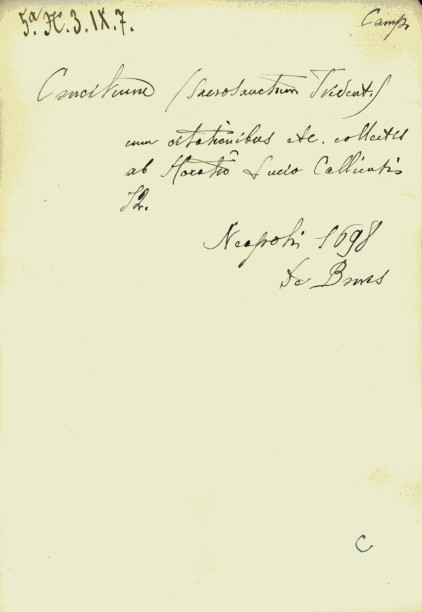 5.ª H. 3. IX. 7.
Camp.
Concilium (Sacrosanctum Trident.)
cum citationibus etc. collectis
ab Horatio Lucio Calliensis
12.
Neapoli 1698
De Bonis
C